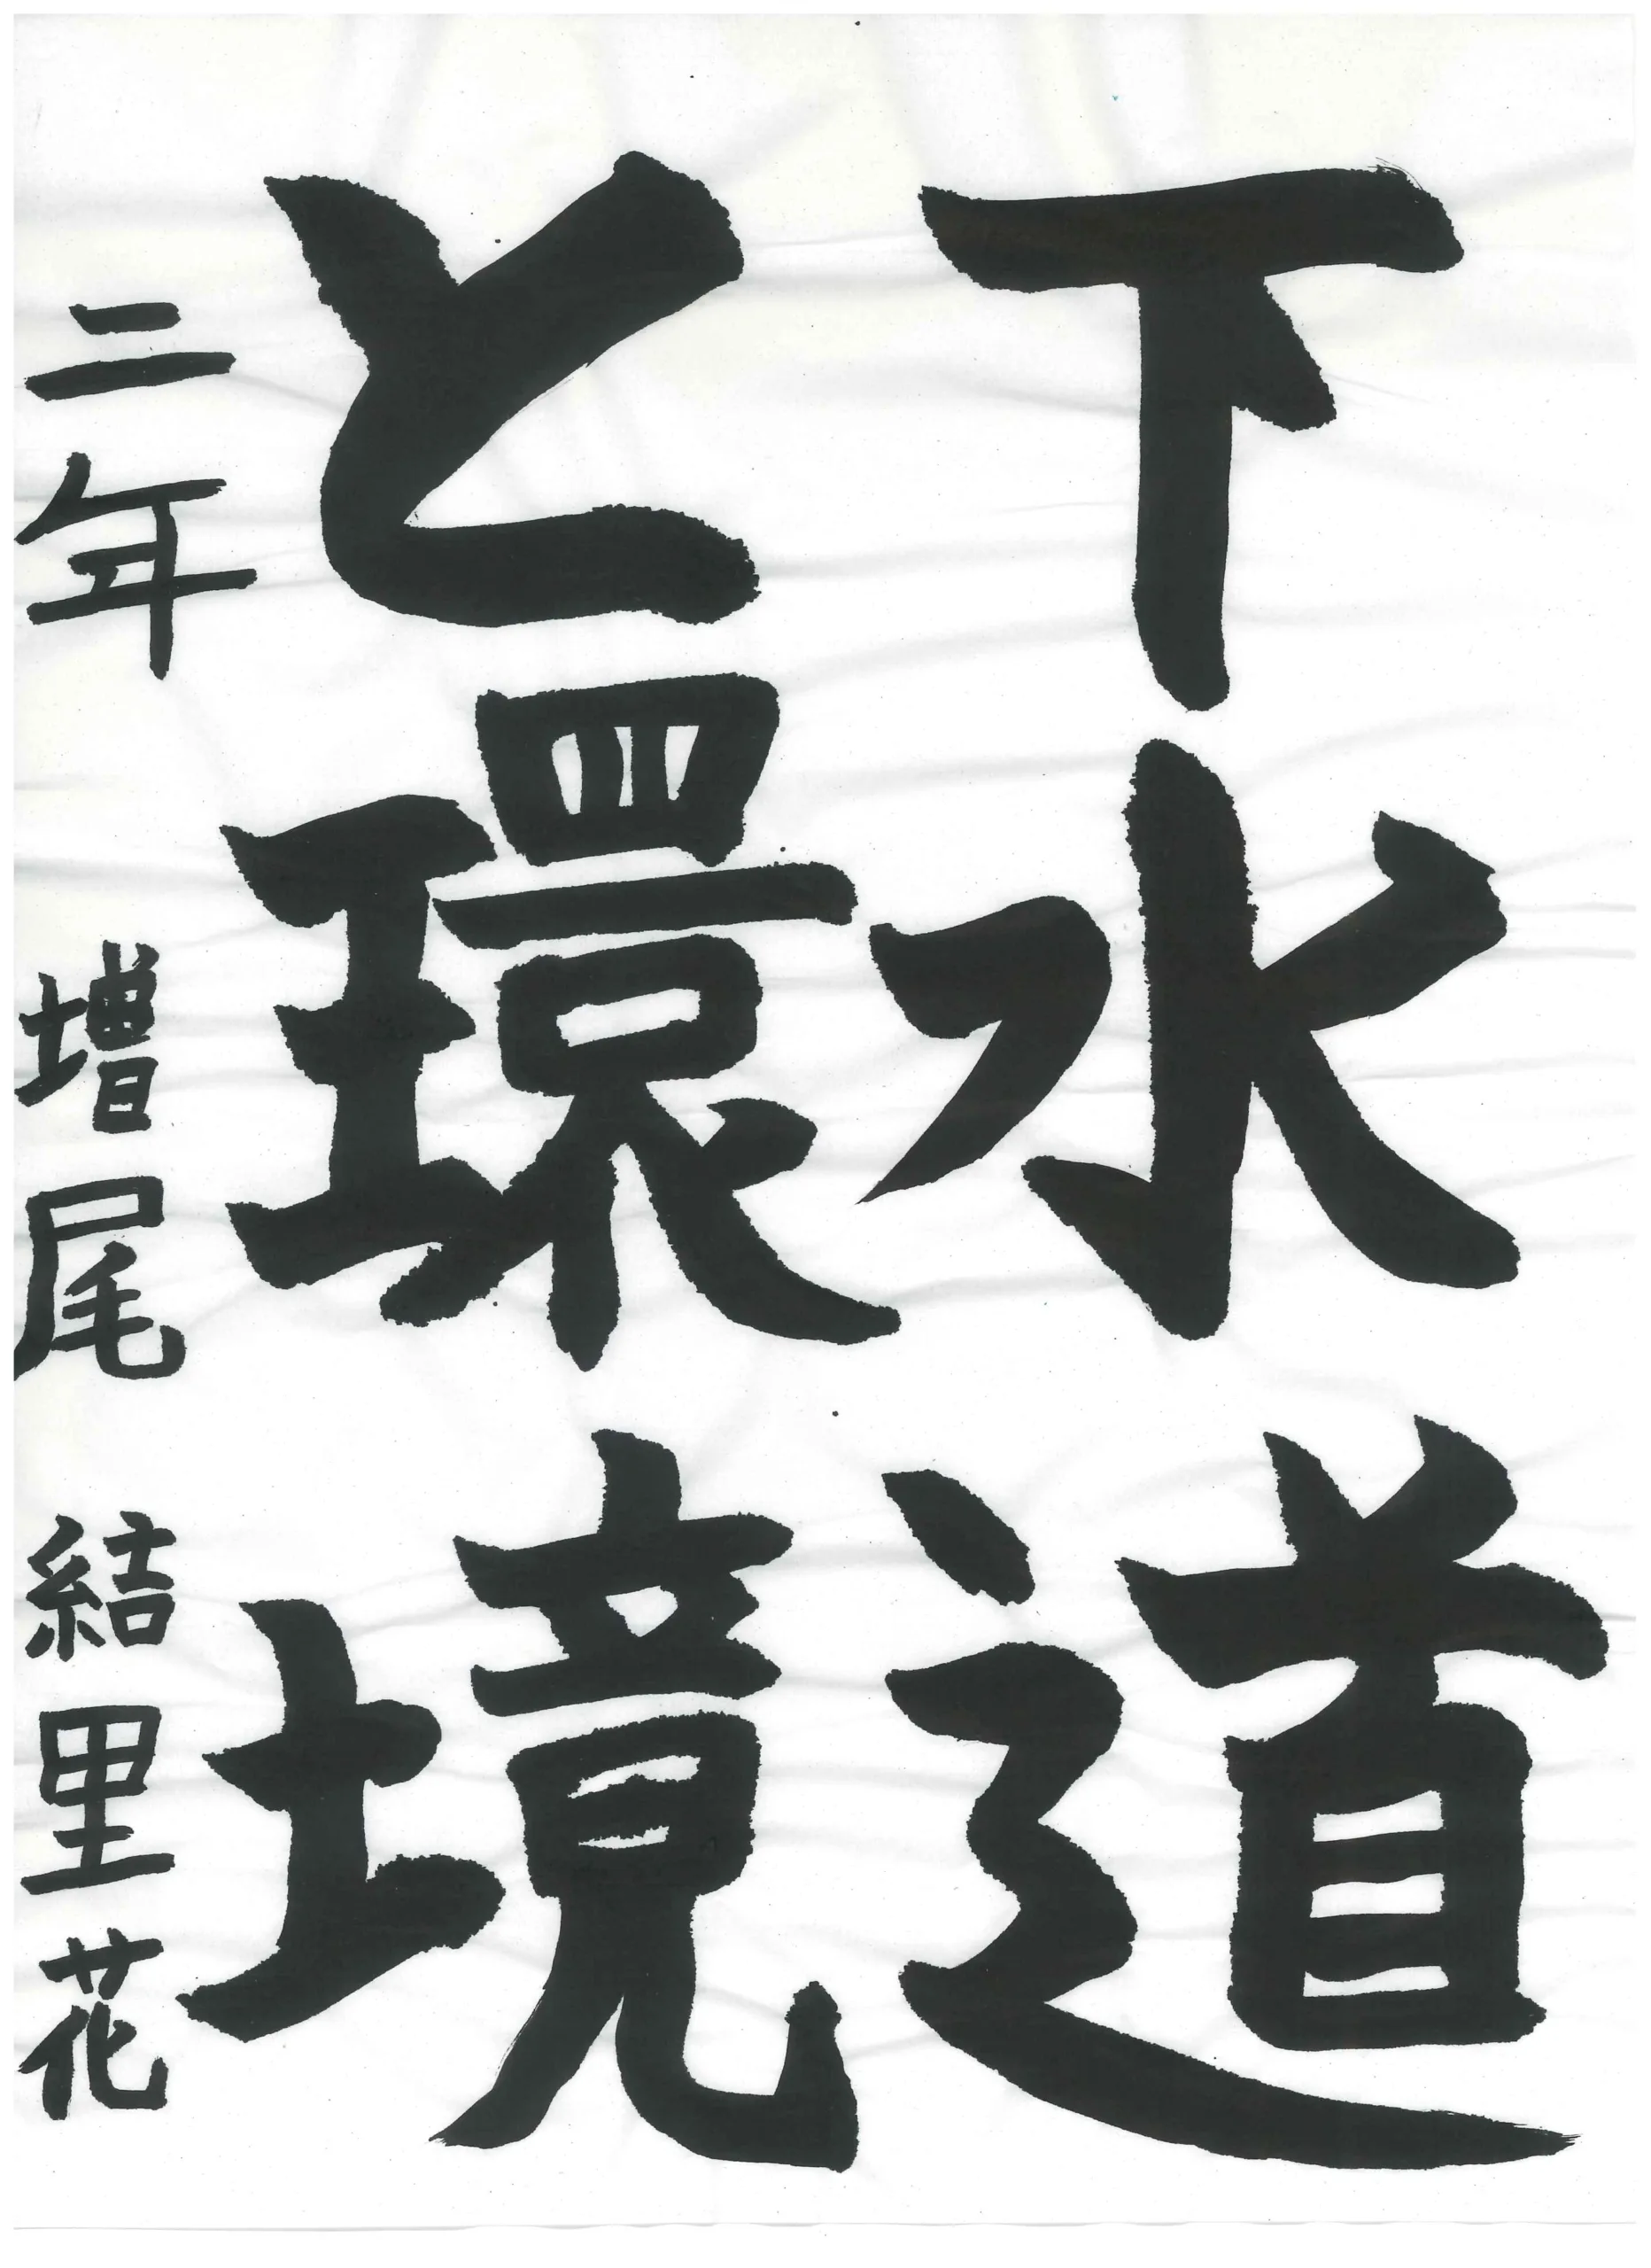 下水道
と環境
二年 増尾 結里花